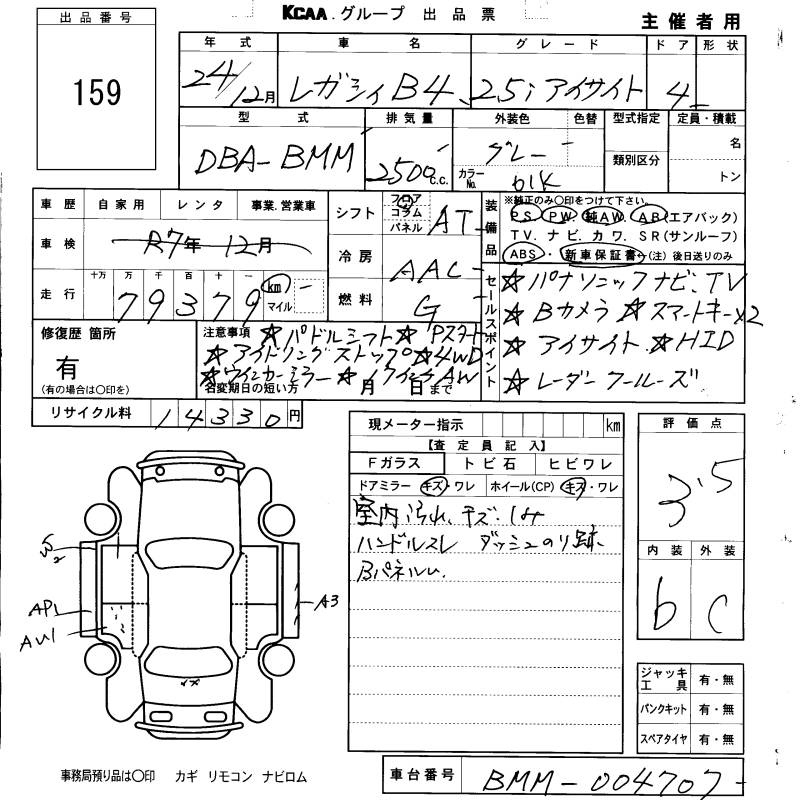 KCAA.グループ 出品票
主催者用
出品番号
159
年式 車名 グレード ドア 形状
24/12月 レガシィB4 2.5i アイサイト 4
型式 排気量 外装色 色替 型式指定 定員・積載
DBA-BMM 2500c.c. グレー 類別区分 名
カラーNo. 61K トン
車歴 自家用 レンタ 事業.営業車
車検 R7年12月
走行 十万 万 千 百 十 一 km マイル
79379
シフト フロア コラム パネル AT
冷房 AAC
燃料 G
装備品 ※純正のみ〇印をつけて下さい。
PS PW 純AW AB(エアバック)
TV. ナビ. カワ. SR(サンルーフ)
ABS ・ 新車保証書 (注)後日送りのみ
セールスポイント
☆パナソニックナビ、TV
☆Bカメラ ☆スマートキーx2
☆アイサイト ☆HID
☆レーダークルーズ
修復歴 箇所
有
(有の場合は〇印を)
注意事項 ☆パドルシフト☆Pスタート
☆アイドリングストップ☆4WD
☆ウインカーミラー☆17インチAW
名変期日の短い方 月 日まで
リサイクル料 14330円
現メーター指示 km
【査定員記入】
Fガラス トビ石 ヒビワレ
ドアミラー キズ・ワレ ホイール(CP) キズ・ワレ
室内汚れ、キズ・しみ
ハンドルスレ ダッシュのり跡
BパネルU.
評価点
3.5
内装 外装
b C
W2
AP1
AU1
A3
ジャッキ工具 有・無
パンクキット 有・無
スペアタイヤ 有・無
事務局預り品は〇印 カギ リモコン ナビロム
車台番号 BMM-004707